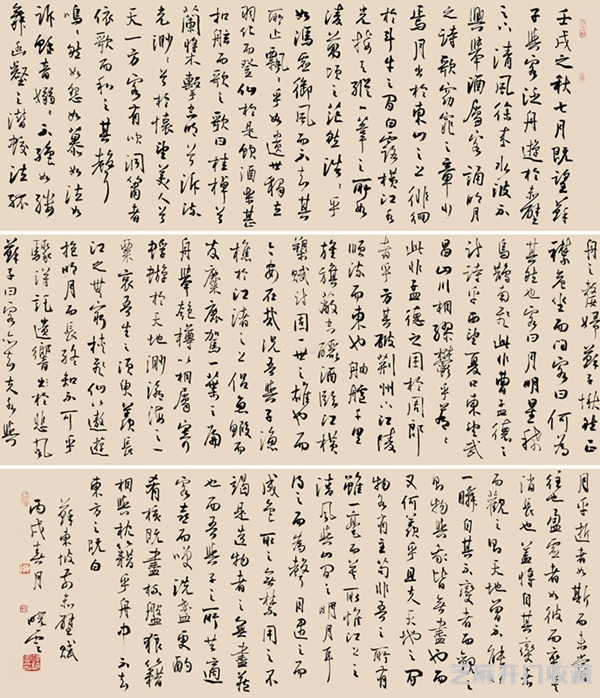 壬戌之秋七月既望蘇
子與客泛舟遊於赤壁
之下清風徐來水波不
興舉酒屬客誦明月
之詩歌窈窕之章少
焉月出於東山之上徘徊
於斗牛之間白露橫江水
光接天縱一葦之所如
凌萬頃之茫然浩浩乎
如馮虛御風而不知其
所止飄飄乎如遺世獨立
羽化而登仙於是飲酒樂甚
扣舷而歌之歌曰桂棹兮
蘭槳擊空明兮泝流
光渺渺兮於懷望美人兮
天一方客有吹洞簫者
依歌而和之其聲
嗚嗚然如怨如慕如泣如
訴餘音嫋嫋不絕如縷
舞幽壑之潛蛟泣孤
舟之嫠婦蘇子愀然正
襟危坐而問客曰何為
其然也客曰月明星稀
烏鵲南飛此非曹孟德之
詩乎西望夏口東望武
昌山川相繆鬱乎蒼蒼
此非孟德之困於周郎
者乎方其破荊州下江陵
順流而東也舳艫千里
旌旗蔽空釃酒臨江橫
槊賦詩固一世之雄也而
今安在哉況吾與子漁
樵於江渚之上侶魚蝦而
友麋鹿駕一葉之扁
舟舉匏樽以相屬寄
蜉蝣於天地渺滄海之一
粟哀吾生之須臾羨長
江之無窮挾飛仙以遨遊
抱明月而長終知不可乎
驟得託遺響於悲風
蘇子曰客亦知夫水與
月乎逝者如斯而未嘗
往也盈虛者如彼而卒莫
消長也蓋將自其變者
而觀之則天地曾不能以
一瞬自其不變者而觀之
則物與我皆無盡也而
又何羨乎且夫天地之間
物各有主苟非吾之所有
雖一毫而莫取惟江上之
清風與山間之明月耳
得之而為聲目遇之而
成色取之無禁用之不
竭是造物者之無盡藏
也而吾與子之所共適
客喜而笑洗盞更酌
肴核既盡杯盤狼籍
相與枕藉乎舟中不知
東方之既白
蘇東坡前赤壁賦
丙戌春月 曉雲
芝麻开门收藏